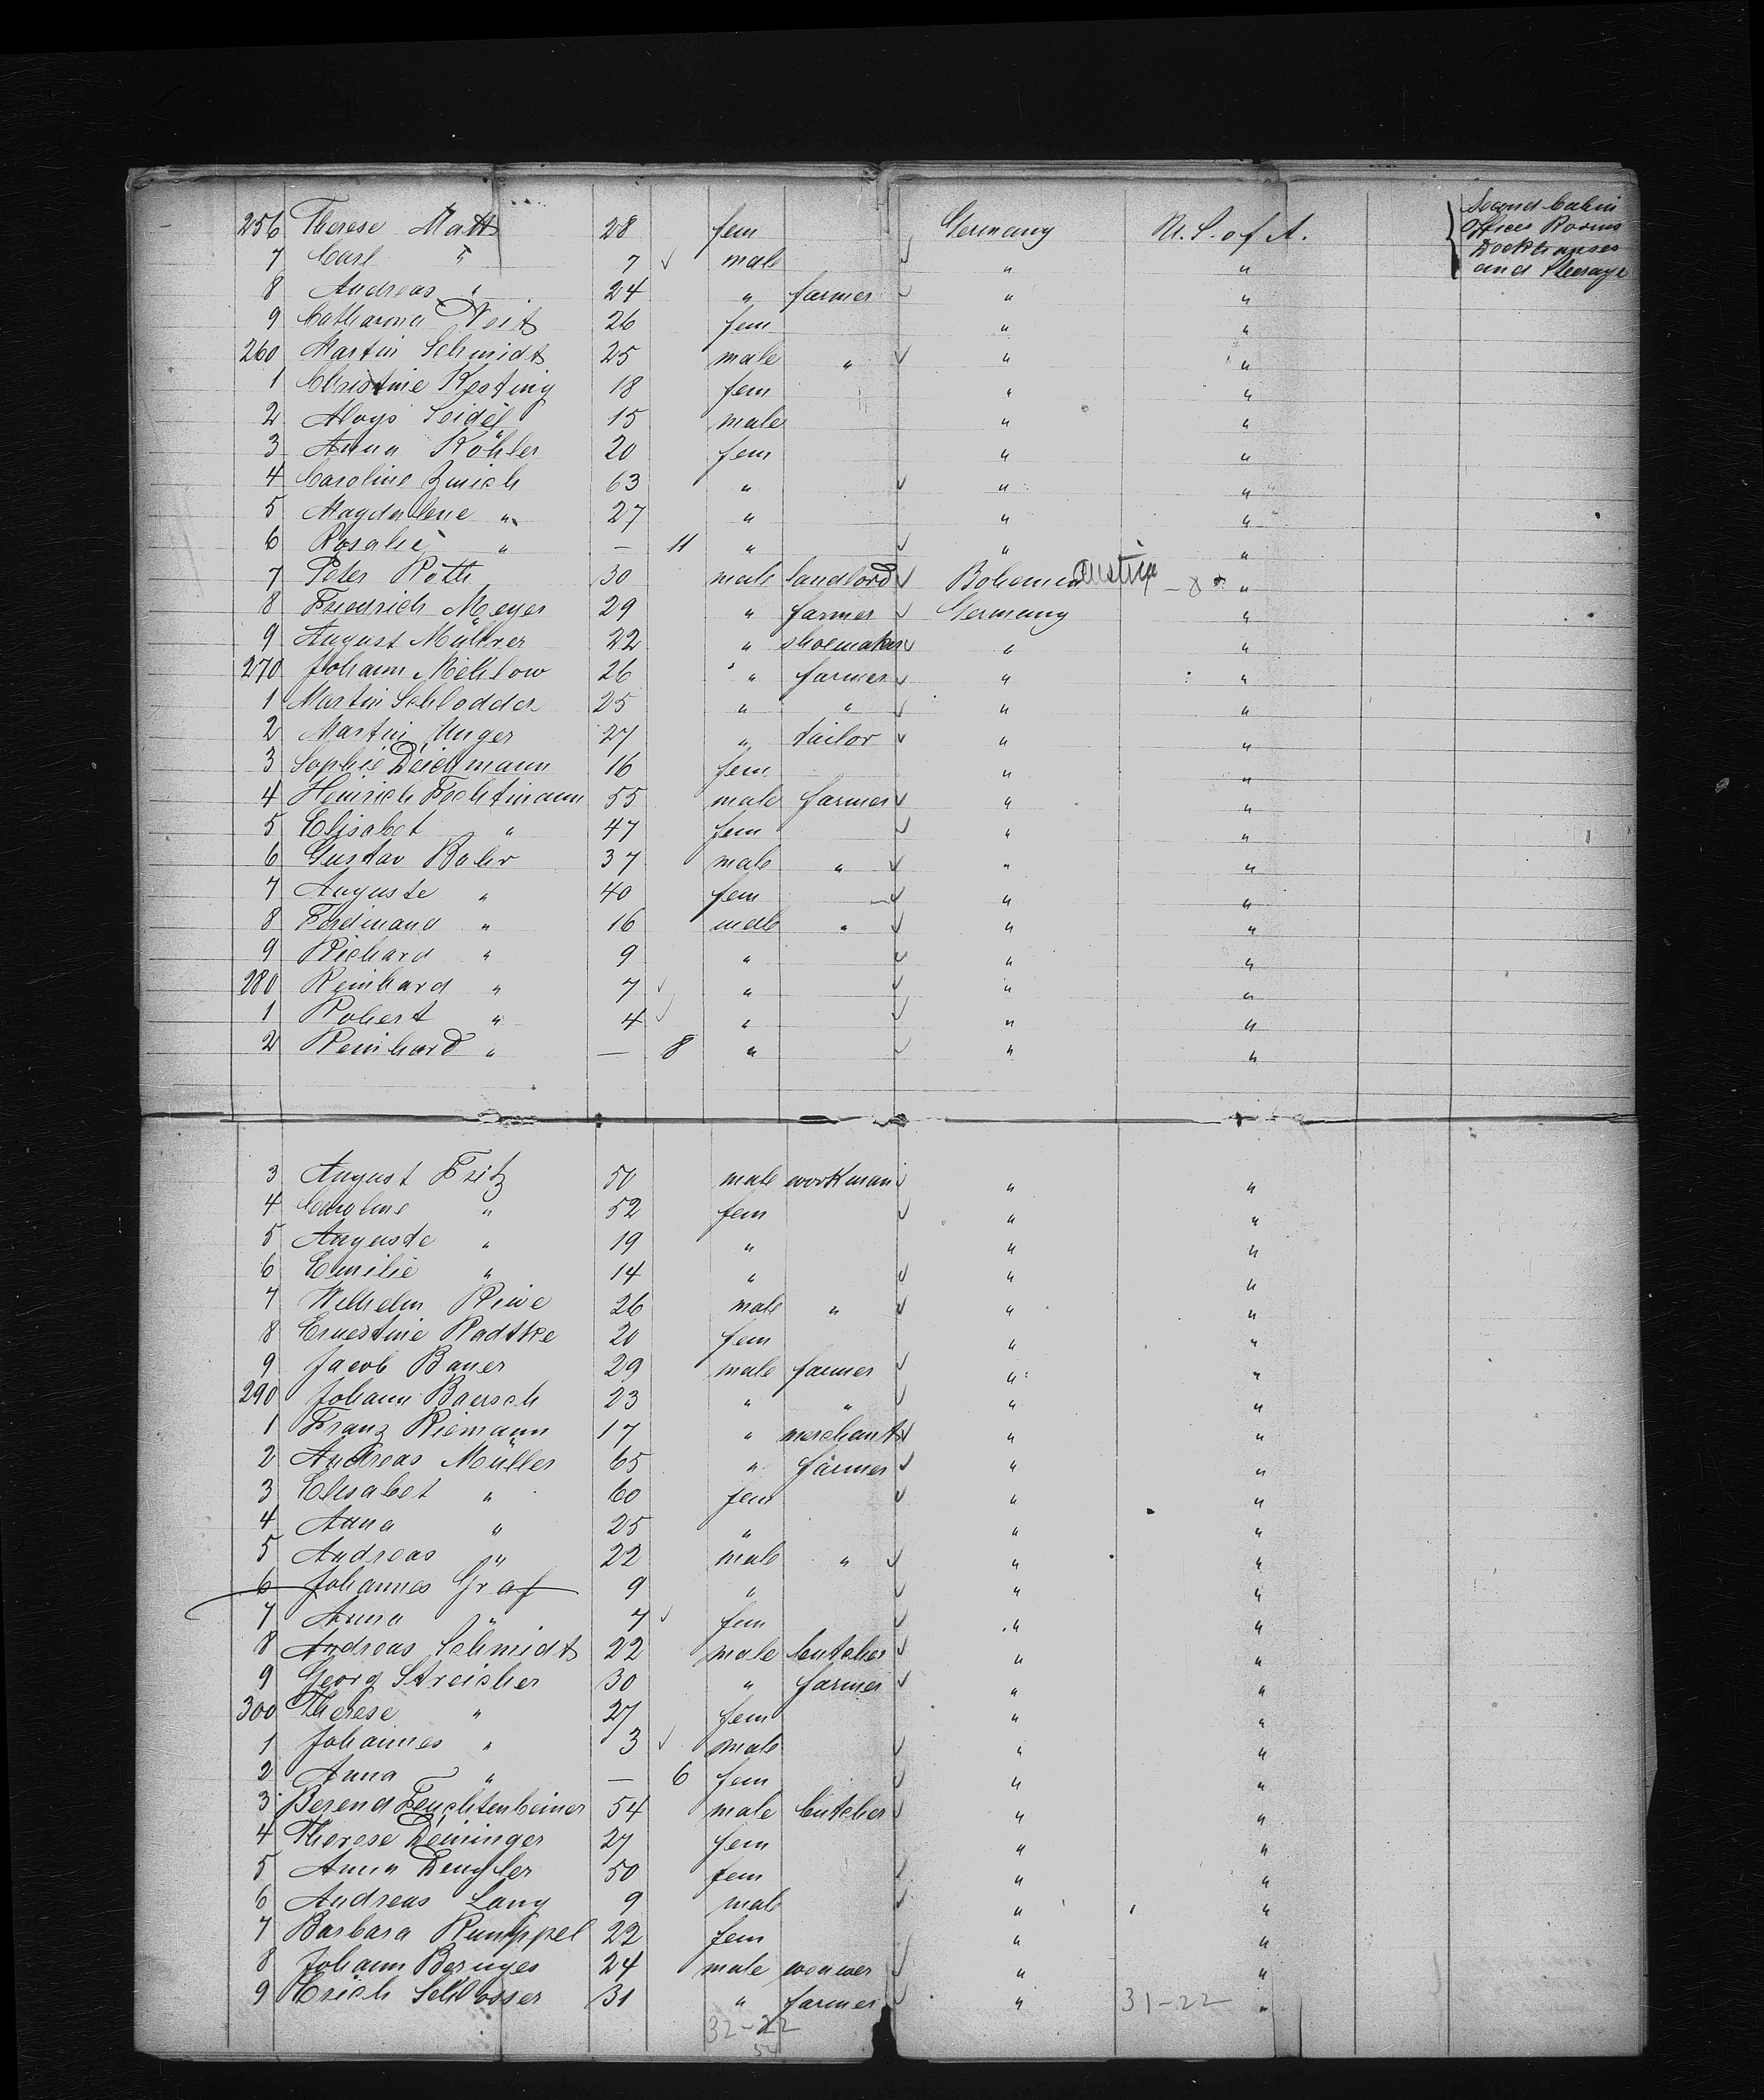 256 Therese Matt 28 fem Germany U.S. of A. Second Cabin
Offices Rooms
and Steerage
7 Carl " 7 ✓ male ✓ " "
8 Andreas " 24 " farmer ✓ " "
9 Catharina Veit 26 fem " "
260 Martin Schmidt 25 male " ✓ " "
1 Christine Kesting 18 fem " "
2 Aloys Seidel 15 male " "
3 Anna Köhler 20 fem " "
4 Caroline 63 " ✓ " "
5 Magdalene " 27 " " "
6 Rosalie " — 11 " ✓ " "
7 Peter Roth 30 male landlord ✓ Bohemia Austria - 8 "
8 Friedrich Meyer 29 " farmer ✓ Germany "
9 August 22 " shoemaker ✓ " "
270 Johann 26 " farmer ✓ " "
1 Martin Schlodder 25 " " ✓ " "
2 Martin Unger 27 " tailor ✓ " "
3 Sophie Deichmann 16 fem " "
4 Heinrich Fechtmann 55 male farmer ✓ " "
5 Elisabet " 47 fem ✓ " "
6 Gustav Bohr 37 male " ✓ " "
7 Auguste " 40 fem ✓ " "
8 Ferdinand " 16 male " ✓ " "
9 Richard " 9 " ✓ " "
280 Reinhard " 7 ✓ " ✓ " "
1 Robert " 4 ✓ " ✓ " "
2 Reinhard " — 8 " ✓ " "
3 August Fritz 50 male workman ✓ " "
4 Caroline " 52 fem ✓ " "
5 Auguste " 19 " " "
6 Emilie " 14 " ✓ " "
7 Wilhelm Riwe 26 male " ✓ " "
8 Ernestine Radtke 20 fem " "
9 Jacob Bauer 29 male farmer ✓ " "
290 Johann Baersch 23 " " ✓ " "
1 Franz Riemann 17 " merchant ✓ " "
2 Andreas Müller 65 " farmer ✓ " "
3 Elisabet " 60 fem ✓ " "
4 Anna " 25 " " "
5 Andreas " 22 male " ✓ " "
6 Johannes Graf 9 " ✓ " "
7 Anna " 7 ✓ fem ✓ " "
8 Andreas Schmidt 22 male butcher ✓ " "
9 Georg Streicher 30 " farmer ✓ " "
300 Therese " 27 fem " "
1 Johannes " 3 ✓ male ✓ " "
2 Anna " — 6 fem ✓ " "
3 Berend Feuchtenbeiner 54 male butcher ✓ " "
4 Therese Deininger 27 fem " "
5 Anna Dengler 50 fem ✓ " "
6 Andreas Lang 9 male ✓ " "
7 Barbara Rumppel 22 fem " "
8 Johann Beruges 24 male weawer ✓ " "
9 Erich Schlosser 31 " farmer ✓ " 31-22 "
32-22
54